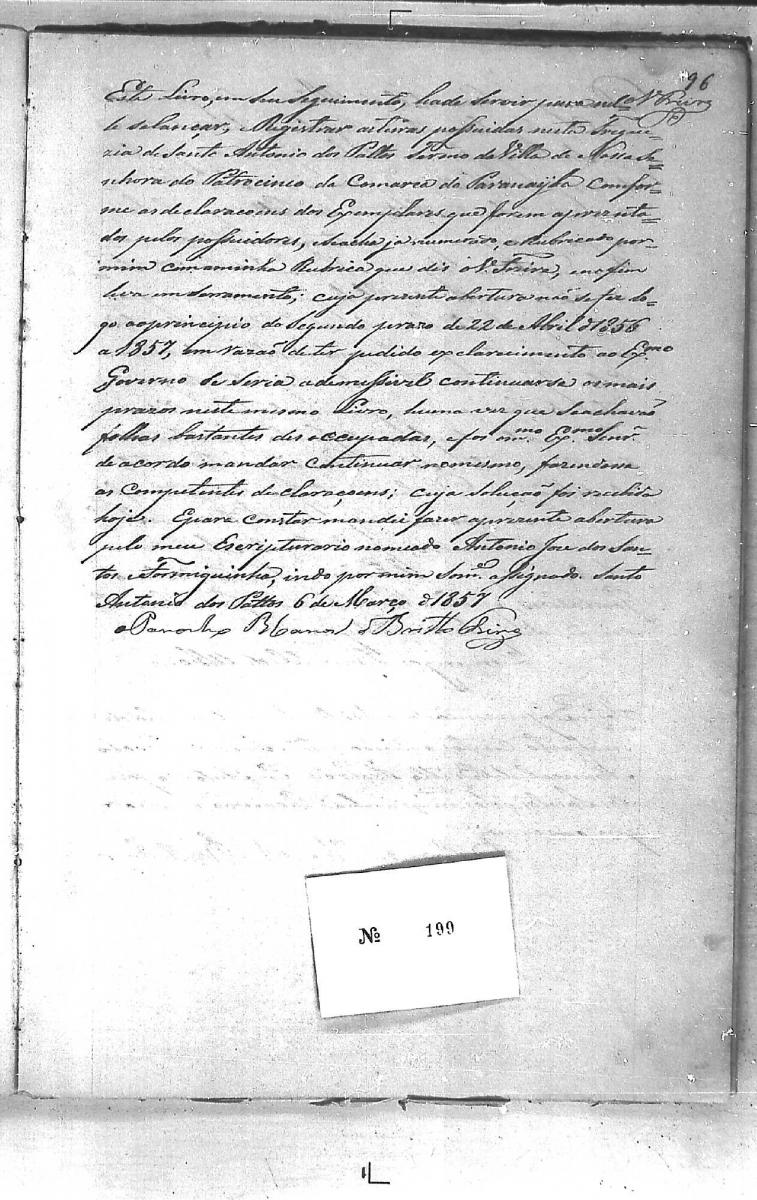 96
Este Livro, em seu seguimento, hade servir para nel N. Freire
le selançar, Registrar asterras possuidas nesta Fregue-
zia de Santo Antonio dos Pattos Termo da Villa de Nossa Se-
nhora do Patrocinio da Comarca do Paranayba Comfor-
me as declaracoens dos Exemplares que forem aprezenta-
dos pelos possuidores, ehacha ja numerado, e Rubricado por-
mim comaminha Rubrica que dis N. Freire, enofim
leva emserramento; cuja prezente abertura não se fez lo-
go aoprincipio do segundo prazo de 22 de Abril d 1856
a 1857, em razaõ de ter pedido exclarecimento ao Exmo
Governo se seria ademessivel continuarse osmais
prazos neste mesmo Livro, huma vez que seachavaõ
folhas bastantes desoccupadas, e foi omo. Exmo. Senr.
de acordo mandar Continuar nomesmo, fazendosea
as Competentes declaraçoens; cuja soluçaõ foi recebida
hoje. Epara constar mandei fazer aprezente abertura
pelo meu Escripturario nomeado Antonio Joze dos San-
tos e Formiguinha, indo por mim Somo. assignado. Santo
Antonio dos Pattos 6 de Março d 1857
o Parocho Manoel d Britto Freire
No 199